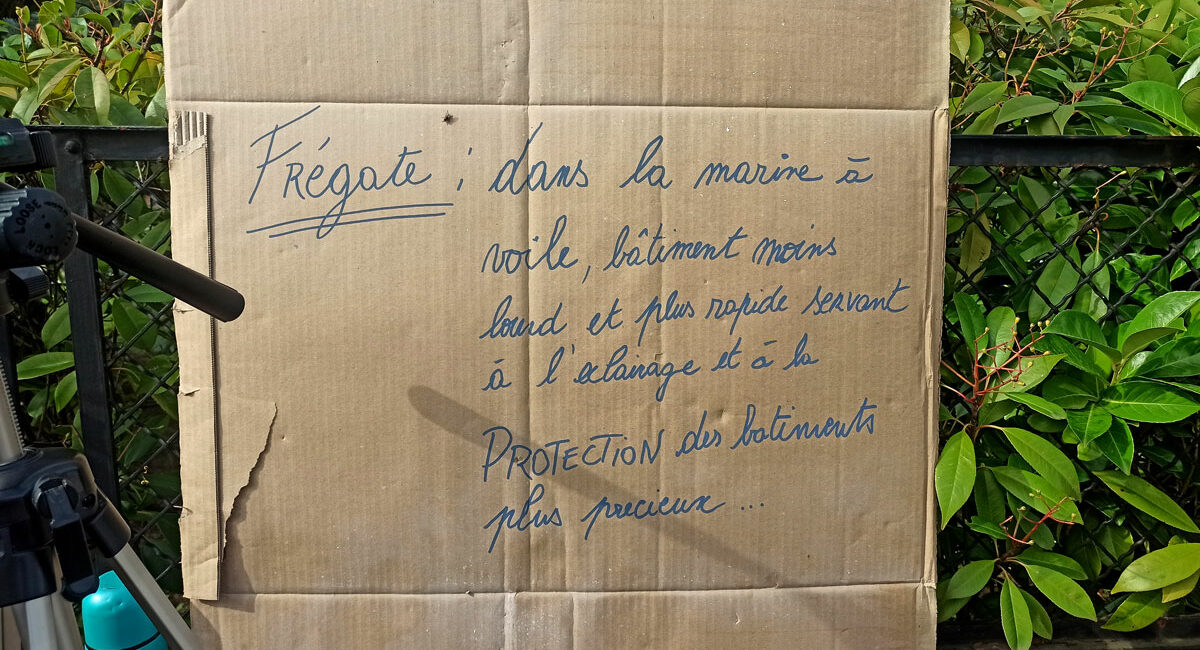 Frégate : dans la marine à
voile, bâtiment moins
lourd et plus rapide servant
à l'eclairage et à la
PROTECTION des batiments
plus precieux ...
LOOSE
LOCK